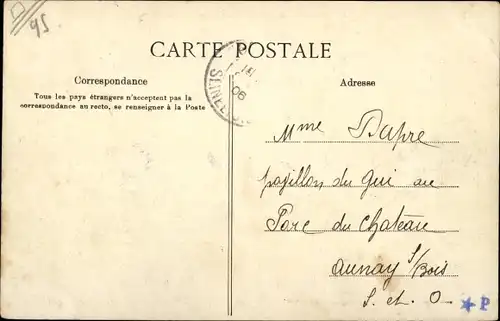 95
CARTE POSTALE
Correspondance
Tous les pays étrangers n'acceptent pas la
correspondance au recto, se renseigner à la Poste
06
Adresse
Mme Dapre
papillon du Gui au
Parc du chateau
aunay s/Bois
S. et O.
P